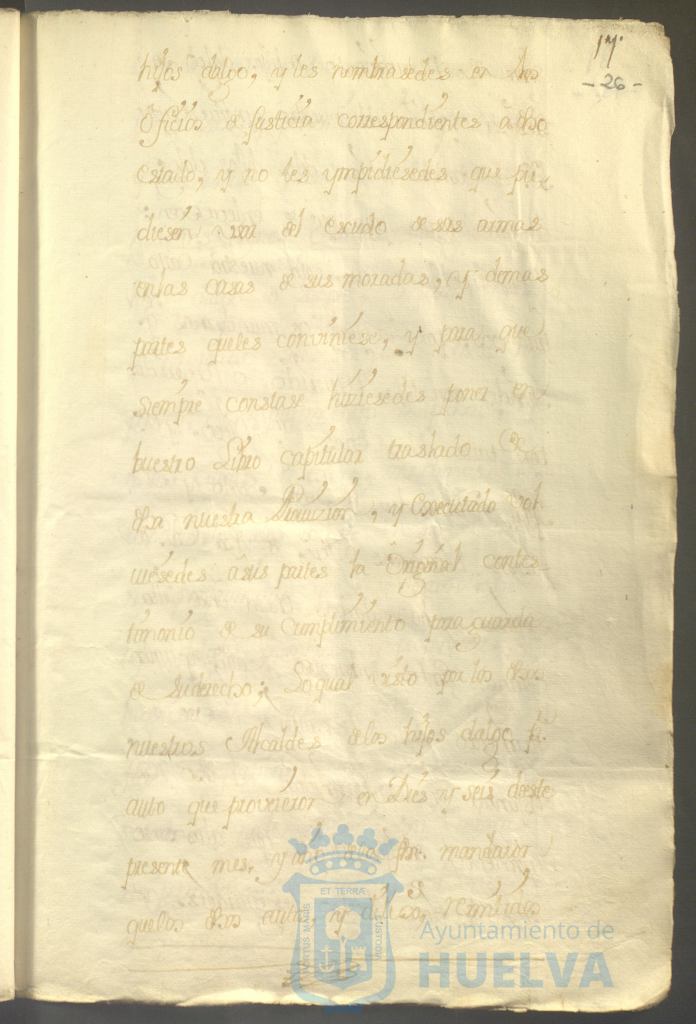 17.
- 26 -
hijos dalgo, y les nombrasedes en los
Oficios de Justicia correspondientes a dho
estado, y no les ympidiesedes que pu
diesen usar del escudo de sus armas
en las casas de sus moradas, y demas
partes que les conviniese, y para que
siempre constase hiciesedes poner en
buestro Libro capitular traslado de
dha nuestra Provizion, y executado vol
uiesedes a sus partes la Original con tes
timonio de su Cumplimiento para guarda
de su derecho; Lo qual visto por los dhos
nuestros Alcaldes de los hijos dalgo
auto que proveieron en Dies y seis deeste
presente mes, y año mandaron
que los dhos autos, y
ET TERRÆ
CUSTODIA
PORTUS MARIS
Ayuntamiento de
HUELVA